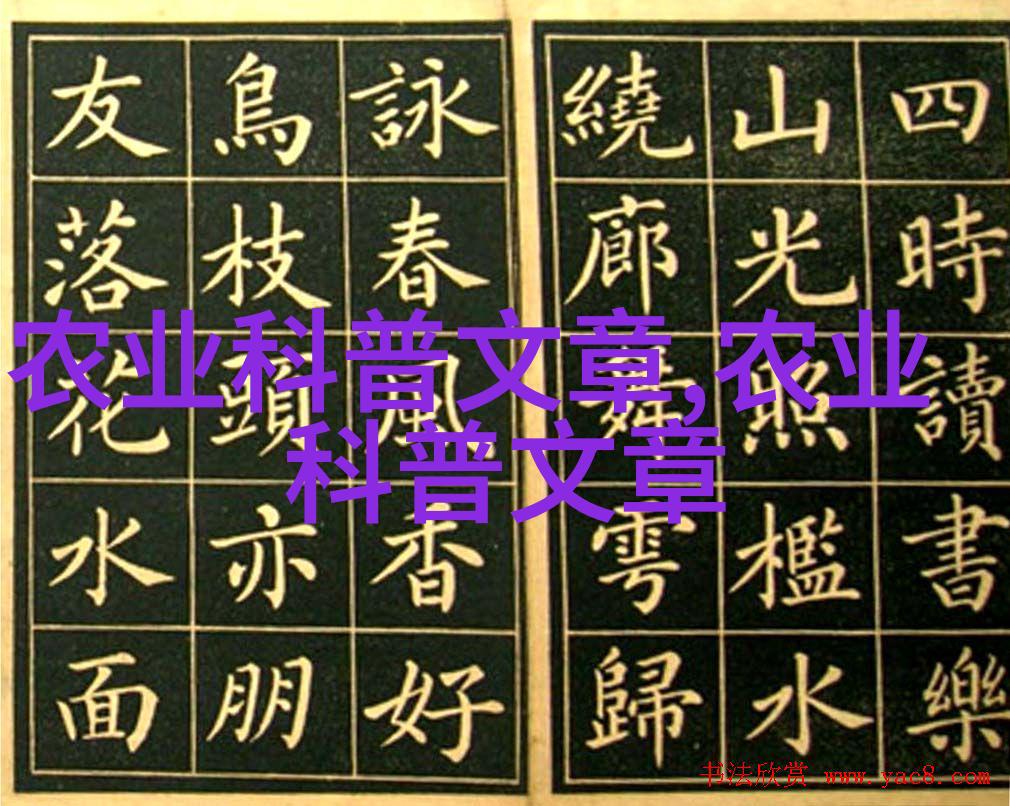 四時讀書樂
山光照檻水
繞廊舞雩歸
詠春風香好
鳥枝頭亦朋
友落花水面
农业科普文章,农业
科普文章
书法欣赏 www.yac8.com